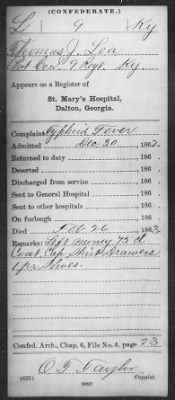 (CONFEDERATE.)
L 9 Ky
Thomas J. Lea
Co. 9 Regt. Ky.
Appears on a Register of
St. Mary's Hospital,
Dalton, Georgia.
Complaint Typhoid Fever
Admitted Dec 30, 1862.
Returned to duty , 186
Deserted , 186
Discharged from service , 186
Sent to General Hospital , 186
Sent to other hospitals , 186
On furlough , 186
Died Feb. 26, 1863.
Remarks: Left money 75 ct
Coat, Cap, Shirt, Drawers
Confed. Arch., Chap. 6, File No. 4, page 23
O T Taylor
Copyist.